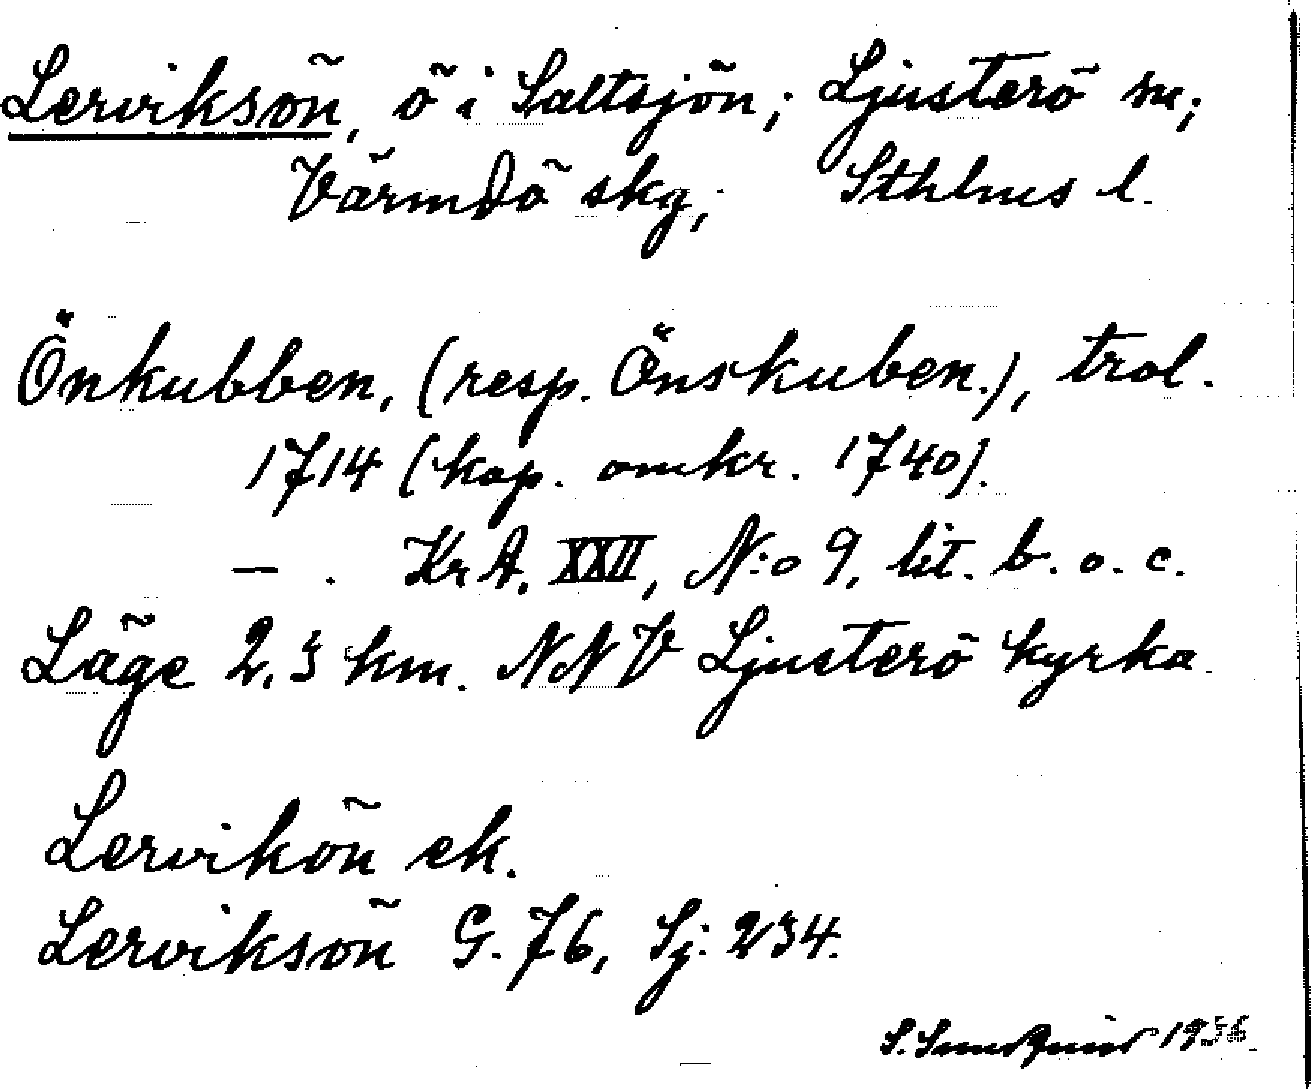 Lerviksön, ö i Saltsjön; Ljusterö sn;
Värmdö skg; Sthlms l.
Önkubben, (resp. Önskuben.), trol.
1714 (kop. omkr. 1740).
— . KrA. XXII, N:o 9, lit. b. o. c.
Läge 2,3 km. NNV Ljusterö kyrka.
Lervikön ek.
Lerviksön G. 76, Sj: 234.
S. 1936